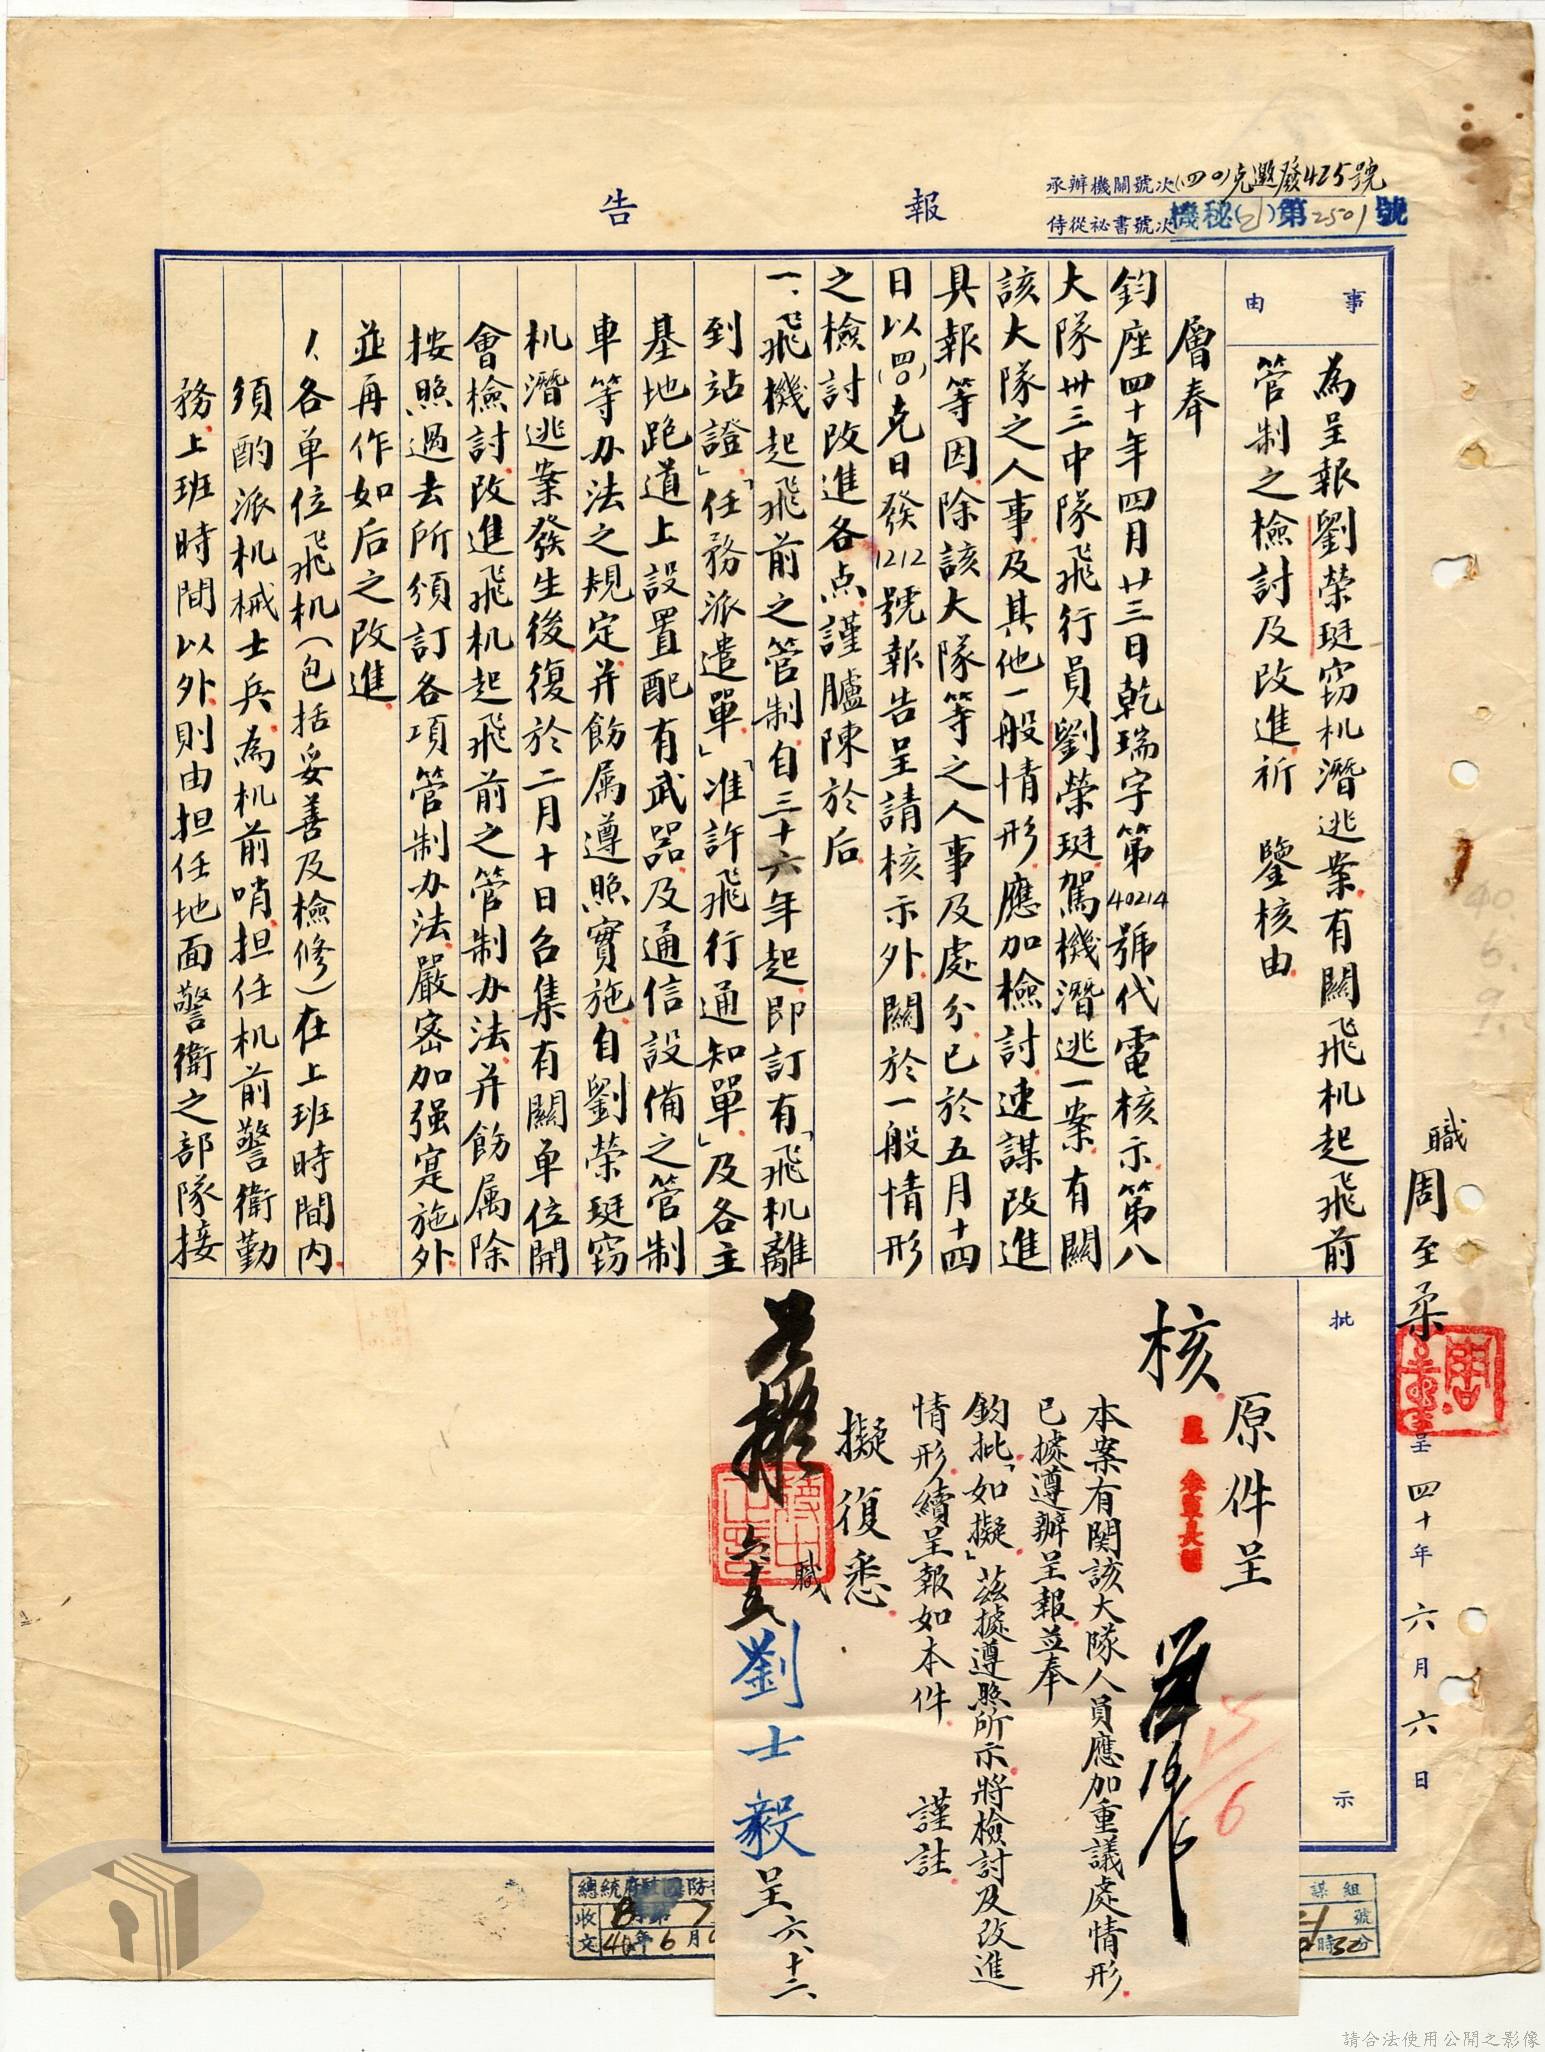 報告
承辦機關號次(四〇)克邀發425號
侍從祕書號次機秘(乙)第2501號
事由
為呈報劉榮珽竊机潛逃案有關飛机起飛前
管制之檢討及改進祈　鑒核由
層奉
鈞座四十年四月廿三日乾瑞字第40214號代電核示第八
大隊卅三中隊飛行員劉榮珽駕機潛逃一案有關
該大隊之人事及其他一般情形應加檢討速謀改進
具報等因除該大隊等之人事及處分已於五月十四
日以(四〇)克日發1212號報告呈請核示外關於一般情形
之檢討改進各点謹臚陳於后
一、飛機起飛前之管制自三十六年起即訂有「飛机離
到站證」「任務派遣單」「准許飛行通知單」及各主
基地跑道上設置配有武器及通信設備之管制
車等办法之規定并飭属遵照實施自劉荣珽窃
机潛逃案發生後復於二月十日召集有關单位開
會檢討改進飛机起飛前之管制办法并飭属除
按照過去所頒訂各項管制办法嚴密加强寔施外
並再作如后之改進
1、各单位飛机(包括妥善及檢修)在上班時間內
須酌派机械士兵為机前哨担任机前警衛勤
務上班時間以外則由担任地面警衛之部隊接
職周至柔
呈四十年六月六日
批示
原件呈
核
本案有関該大隊人員應加重議處情形
已據遵辦呈報並奉
鈞批「如擬」茲據遵照所示將檢討及改進
情形續呈報如本件　謹註
擬復悉
職
劉士毅呈六、十二、
15/6
總統府
國防
收文
40年6月
謀組
號
時32分
請合法使用公開之影像